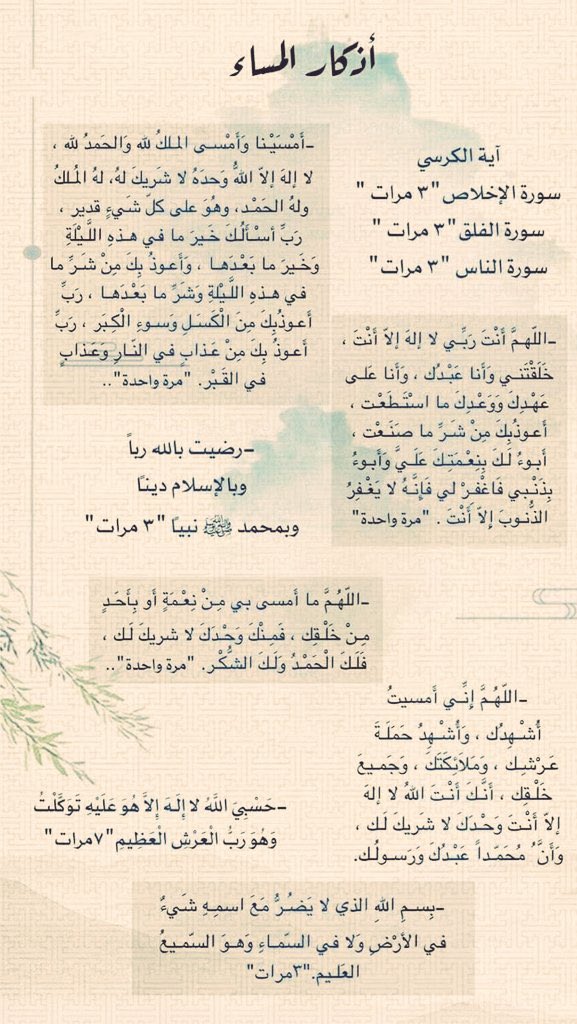 أذكار المساء
آية الكرسي
سورة الإخلاص "٣ مرات "
سورة الفلق "٣ مرات "
سورة الناس "٣ مرات"
–أَمْسَيْنا وَأَمْسى المـلكُ لله وَالحَمدُ لله ،
لا إلهَ إلاّ اللّهُ وَحدَهُ لا شَريكَ لهُ، لهُ المُلكُ
ولهُ الحَمْـد، وهُوَ على كلّ شَيءٍ قدير ،
رَبِّ أسْـأَلُـكَ خَـيرَ ما في هـذهِ اللَّـيْلَةِ
وَخَـيرَ ما بَعْـدَهـا ، وَأَعـوذُ بِكَ مِنْ شَـرِّ ما
في هـذهِ اللَّـيْلةِ وَشَرِّ ما بَعْـدَهـا ، رَبِّ
أَعـوذُبِكَ مِنَ الْكَسَـلِ وَسـوءِ الْكِـبَر ، رَبِّ
أَعـوذُ بِكَ مِنْ عَـذابٍ في النّـارِ وَعَـذابٍ
في القَـبْر. "مرة واحدة"..
–اللّهـمَّ أَنْتَ رَبِّـي لا إلهَ إلاّ أَنْتَ ،
خَلَقْتَنـي وَأَنا عَبْـدُك ، وَأَنا عَلـى
عَهْـدِكَ وَوَعْـدِكَ ما اسْتَـطَعْـت ،
أَعـوذُبِكَ مِنْ شَـرِّ ما صَنَـعْت ،
أَبـوءُ لَـكَ بِنِـعْمَتِـكَ عَلَـيَّ وَأَبـوءُ
بِذَنْـبي فَاغْفـِرْ لي فَإِنَّـهُ لا يَغْـفِرُ
الذُّنـوبَ إِلاّ أَنْتَ . "مرة واحدة"
–رضيت بالله رباً
وبالإسلام دينًا
وبمحمد ﷺ نبياً "٣ مرات"
–اللّهُـمَّ ما أمسى بي مِـنْ نِعْـمَةٍ أو بِأَحَـدٍ
مِـنْ خَلْـقِك ، فَمِـنْكَ وَحْـدَكَ لا شريكَ لَـك ،
فَلَـكَ الْحَمْـدُ وَلَـكَ الشُّكْـر. "مرة واحدة"..
–اللّهُـمَّ إِنِّـي أَمسيتُ
أُشْـهِدُك ، وَأُشْـهِدُ حَمَلَـةَ
عَـرْشِـك ، وَمَلَائِكَتَكَ ، وَجَمـيعَ
خَلْـقِك ، أَنَّـكَ أَنْـتَ اللهُ لا إلهَ
إلاّ أَنْـتَ وَحْـدَكَ لا شَريكَ لَـك ،
وَأَنَّ ُ مُحَمّـداً عَبْـدُكَ وَرَسـولُـك.
–حَسْبِيَ اللَّهُ لا إِلَـهَ إِلاَّ هُوَ عَلَيْهِ تَوَكَّلْتُ
وَهُوَ رَبُّ الْعَرْشِ الْعَظِيمِ"٧مرات"
–بِسمِ اللهِ الذي لا يَضـُرُّ مَعَ اسمِهِ شَيءٌ
في الأرْضِ وَلا في السّمـاءِ وَهـوَ السّمـيعُ
العَلـيم."٣مرات"